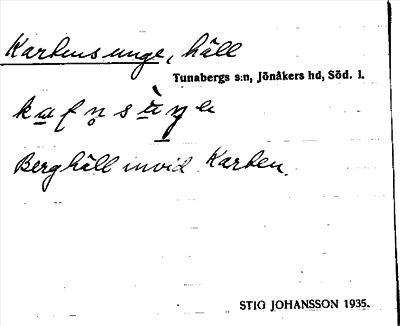 Karkens unge, häll
Tunabergs s:n, Jönåkers hd, Söd. l.
Berghäll invid Karken.
STIG JOHANSSON 1935.